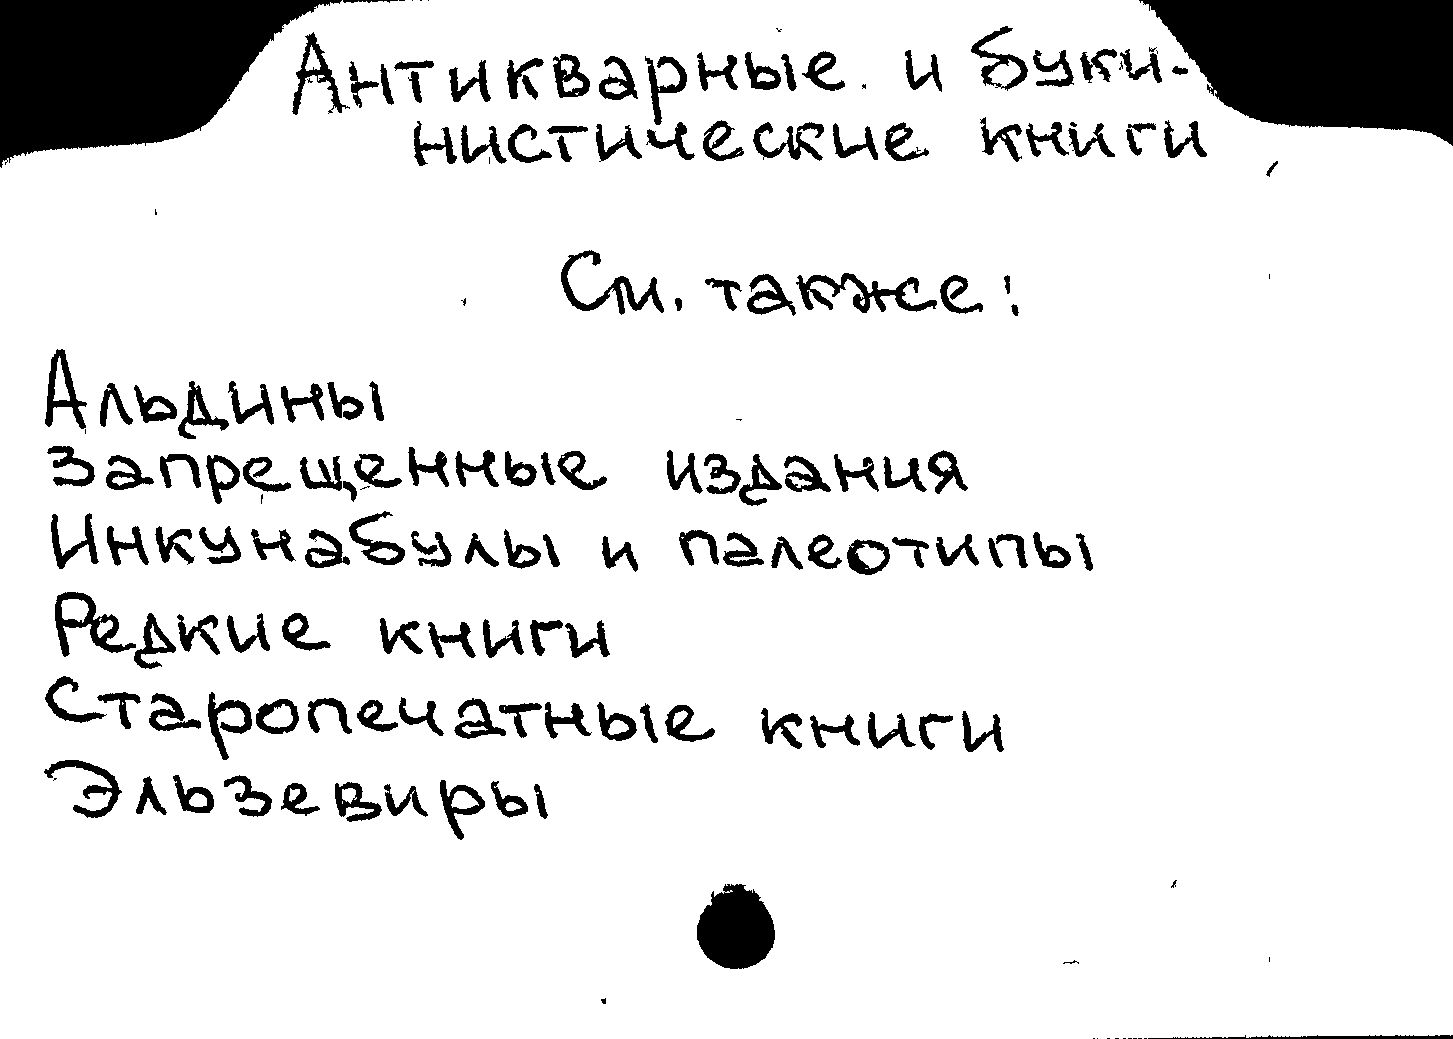 Антикварные и буки-
нистические книги
См. также:
Альдины
Запрещенные издания
Инкунабулы и палеотипы
Редкие книги
Старопечатные книги
Эльзевиры